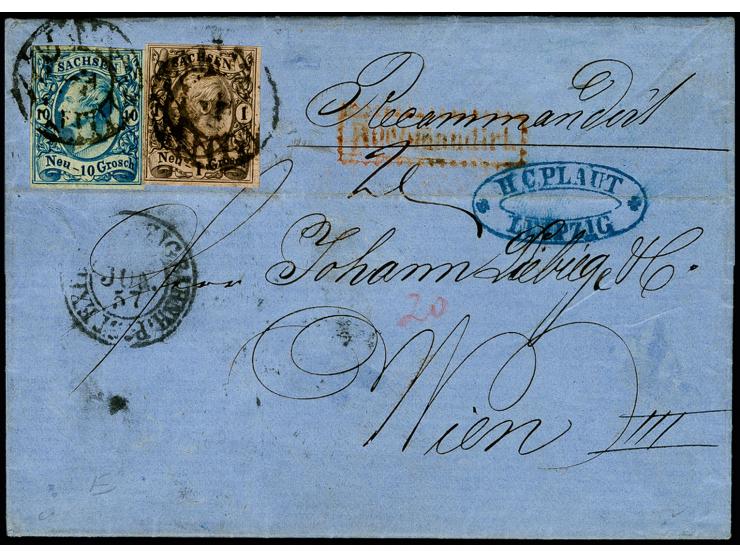 SACHSEN
10 10
Neu-10 Grosch
SACHSEN
1 1
Neu-1 Grosch
Recommandirt
Recommandirt
H.C. PLAUT
LEIPZIG
JUN
57
Herrn Johann Liebieg & C.
20
Wien III
E